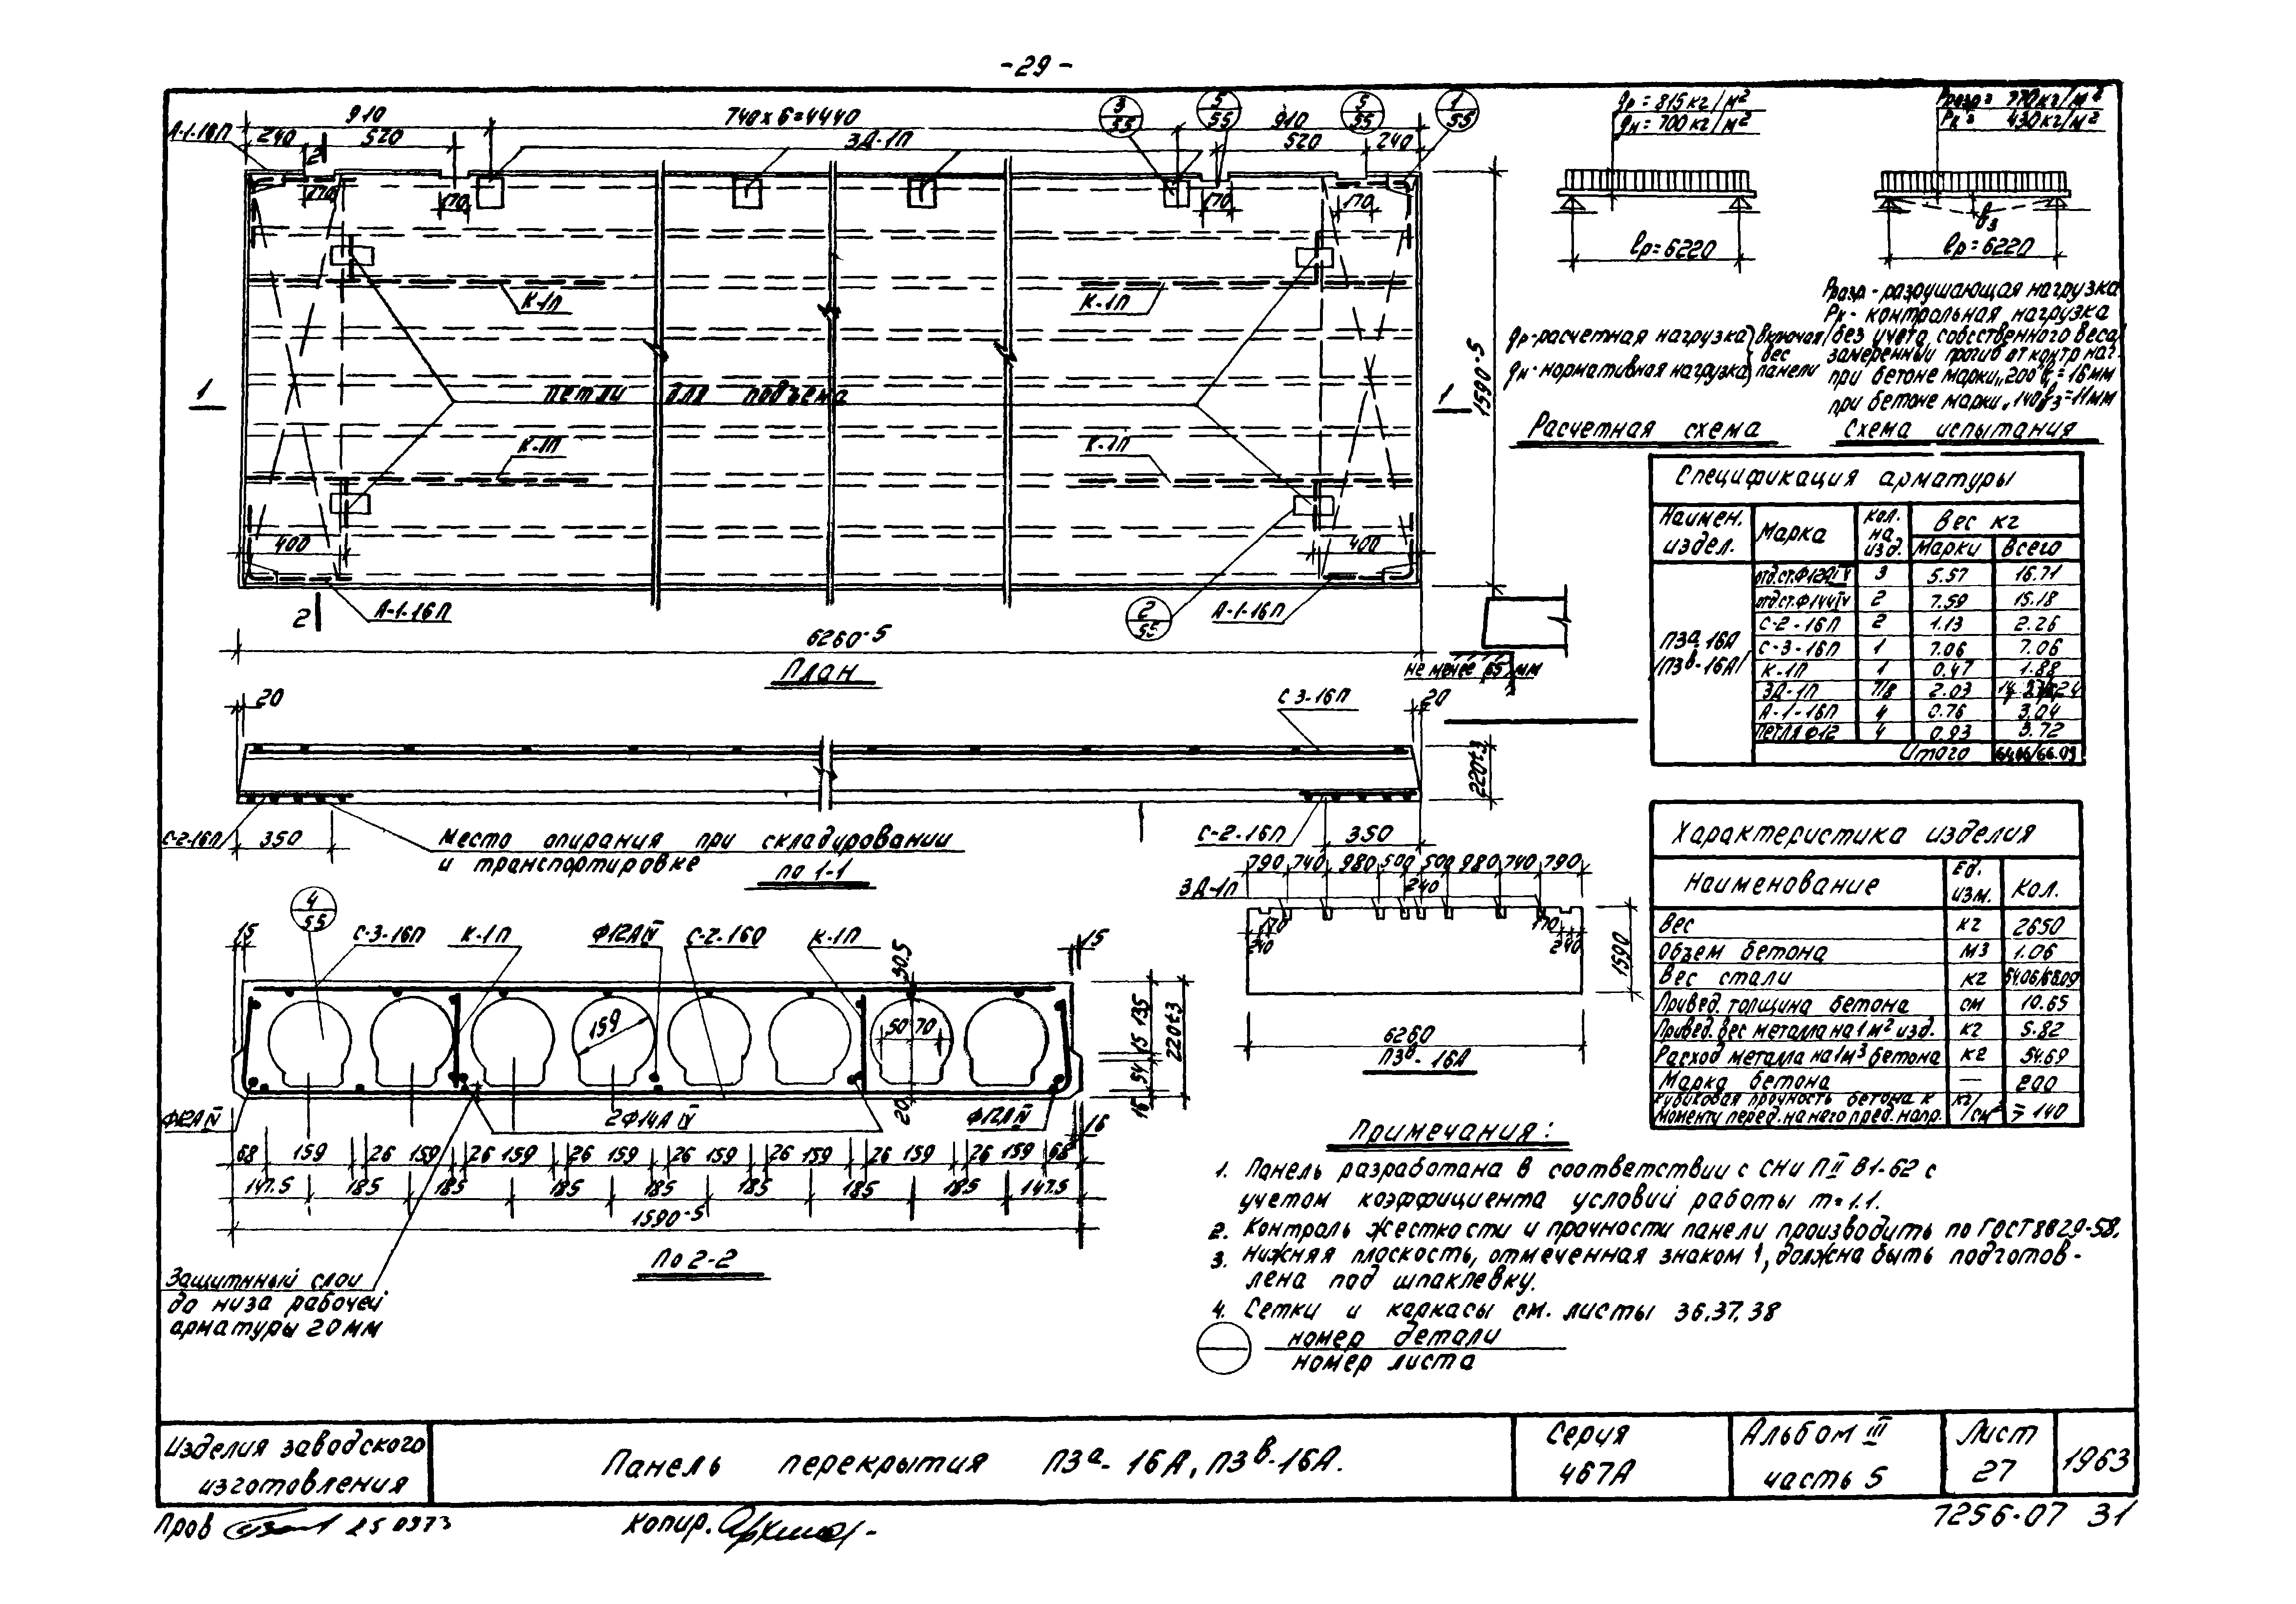 -29-
910
740х6=4440
910
А-1-16П
240
520
ЗД-1П
520
240
3
55
5
55
5
55
1
55
2
170
170
170
170
К-1П
К-1П
1
петли для подъема
1
1590-5
К-1П
К-1П
400
400
2
А-1-16П
2
55
А-1-16П
6260-5
План
не менее 65 мм
gр=815кг/м²
gн=700кг/м²
Рразр= 770кг/м²
Рк= 430кг/м²
f₃
lр=6220
lр=6220
Рразр-разрушающая нагрузка
Рк-контрольная нагрузка
gр-расчетная нагрузка
gн-нормативная нагрузка
включая
вес
панели
без учета собственного веса
замеренный прогиб от контр наг.
при бетоне марки „200" f₃=16мм
при бетоне марки „140" f₃=11мм
Расчетная схема
Схема испытания
Спецификация арматуры
Наимен. издел.
Марка
Кол. на изд.
Вес кг
Марки
Всего
П3а-16А
/П3в-16А/
отд.ст.Ф12АIV 3 5.57 16.71
отд.ст.Ф14АIV 2 7.59 15.18
С-2-16П 2 1.13 2.26
С-3-16П 1 7.06 7.06
К-1П 1 0.47 1.88
ЗД-1П 7/8 2.03
А-1-16П 4 0.76 3.04
Петля Ф12 4 0.93 3.72
Итого
20
С3-16П
20
220±3
С-2-16П
350
Место опирания при складировании
и транспортировке
по 1-1
С-2-16П
350
790 740 980 500 500 980 740 790
ЗД-1П
240
170
170
240
240
1590
6260
П3в-16А
Характеристика изделия
Наименование
Ед. изм.
Кол.
Вес кг 2650
Объем бетона м3 1.06
Вес стали кг
Привед. толщина бетона см 10.65
Привед. вес металла на 1м² изд. кг 5.82
Расход металла на 1м³ бетона кг 54.69
Марка бетона — 200
Кубиковая прочность бетона к
моменту перед. на него пред. напр. кг/см² ≥ 140
4
55
15
С-3-16П
К-1П
Ф12АIV
С-2-16П
К-1П
30.5
15
159
50 70
135
15
54
16
220±3
20
Ф12АIV
2Ф14АIV
Ф12АIV
16
68 159 26 159 26 159 26 159 26 159 26 159 26 159 26 159 68
147.5 185 185 185 185 185 185 185 147.5
1590-5
По 2-2
Защитный слой
до низа рабочей
арматуры 20мм
Примечания:
1. Панель разработана в соответствии с СНиП II В1-62 с
учетом коэффициента условий работы m=1.1.
2. Контроль жесткости и прочности панели производить по ГОСТ 8829-58.
3. Нижняя плоскость, отмеченная знаком 1, должна быть подготов-
лена под шпаклевку.
4. Сетки и каркасы см. листы 36,37,38
номер детали
номер листа
Изделия заводского
изготовления
Панель перекрытия П3а-16А, П3в-16А.
Серия
467А
Альбом III
часть 5
Лист
27
1963
Пров
Копир.
7256-07 31